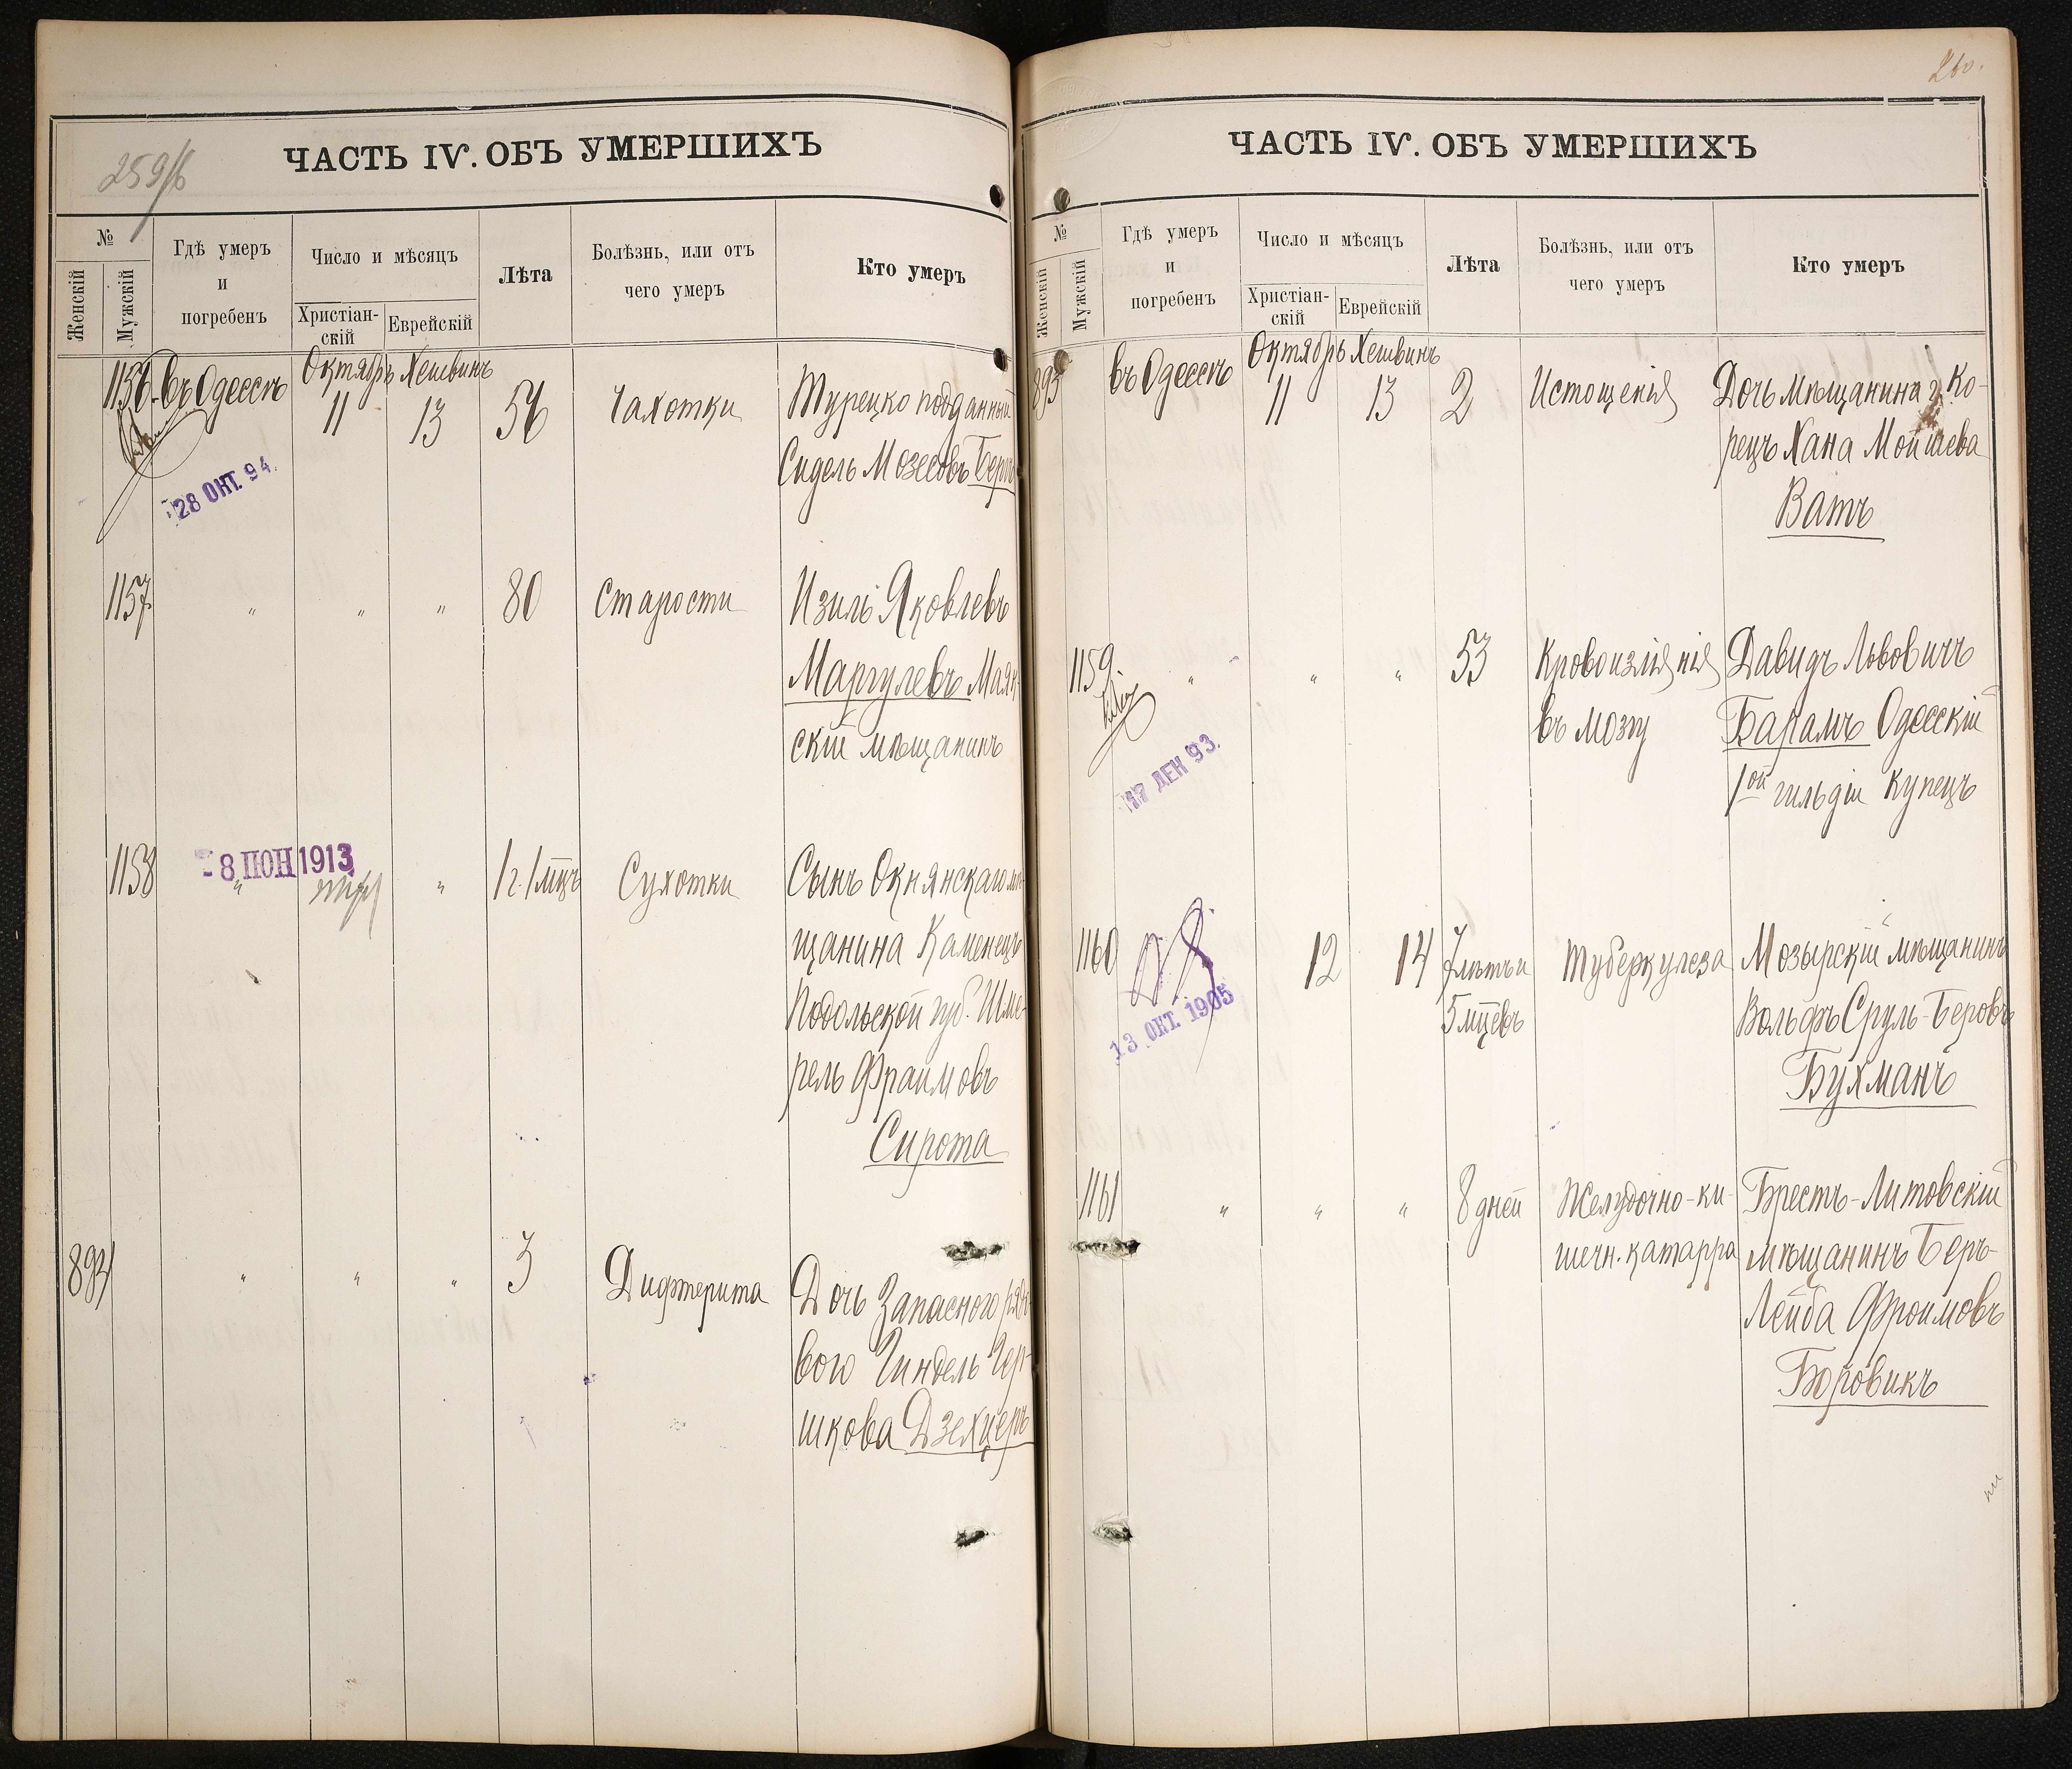 259/б
ЧАСТЬ IV. ОБЪ УМЕРШИХЪ
№
Женскій
Мужскій
Гдѣ умеръ
и
погребенъ
Число и мѣсяцъ
Христіан-
скій
Еврейскій
Лѣта
Болѣзнь, или отъ
чего умеръ
Кто умеръ
1156 въ Одессѣ Октябрь 11 Хешвинъ 13 56 Чахотки Турецко подданный
Сидель Мозесовъ
28 ОКТ. 94.
1157 " " " 80 Старости Изиль Яковлевъ
Маргулевъ Маяк-
скій мѣщанинъ
1158 " " 1 г. 1 мцъ Сухотки Сынъ Окнянскаго мѣ-
8 ІЮН 1913
щанина Каменецъ
Подольской губ. Шме-
рель Фраимовъ
Сирота
894 " " " 3 Дифтерита Дочь Запасного рядо-
вого Гиндель Гер-
шкова Дзехцеръ
260.
ЧАСТЬ IV. ОБЪ УМЕРШИХЪ
№
Женскій
Мужскій
Гдѣ умеръ
и
погребенъ
Число и мѣсяцъ
Христіан-
скій
Еврейскій
Лѣта
Болѣзнь, или отъ
чего умеръ
Кто умеръ
895 въ Одессѣ Октябрь 11 Хешвинъ 13 2 Истощенія Дочь мѣщанина г. Ко-
рецъ Хана Мойшева
Ватъ
1159 " " " 53 Кровоизліянія Давидъ Львовичъ
въ мозгу Барамъ Одесскій
17 ДЕК 93.
1ой гильдіи купецъ
1160 12 14 7 лѣтъ и Туберкулеза Мозырскій мѣщанинъ
5 мцевъ Вольфъ Сруль-Беровъ
13 ОКТ. 1905
Бухманъ
1161 " " " 8 дней Желудочно-ки- Брестъ-Литовскій
шечн. катарра мѣщанинъ Беръ-
Лейба Фроимовъ
Боровикъ